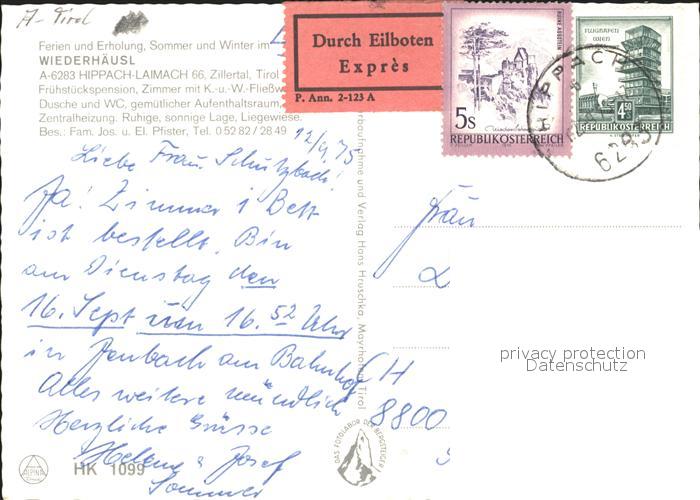 A-Tirol
Ferien und Erholung, Sommer und Winter im
WIEDERHÄUSL
A-6283 HIPPACH-LAIMACH 66, Zillertal, Tirol
Frühstückspension, Zimmer mit K.-u.-W.-Fließw
Dusche und WC, gemütlicher Aufenthaltsraum,
Zentralheizung. Ruhige, sonnige Lage, Liegewiese.
Bes.: Fam. Jos. u. El. Pfister, Tel. 0 52 82 / 28 49
Durch Eilboten
Exprès
P. Ann. 2-123 A
RUINE AGGSTEIN
5S
REPUBLIK ÖSTERREICH
FLUGHAFEN
WIEN
4.50
REPUBLIK ÖSTERREICH
HIPPACH
6283
12/9.75
Liebe Frau Schutzbach!
Ja! Zimmer 1 Bett
ist bestellt. Bin
am Dienstag den
16. Sept um 16.52 Uhr
in Jenbach am Bahnhof
Alles weitere mündlich
Herzliche Grüsse
Helene & Josef
Sommer
HK 1099
ALPINA
rbaufnahme und Verlag Hans Hruschka, Mayrhofen, Tirol
DAS FOTOLABOR DER BERGSTEIGER
Frau
CH
8800
privacy protection
Datenschutz